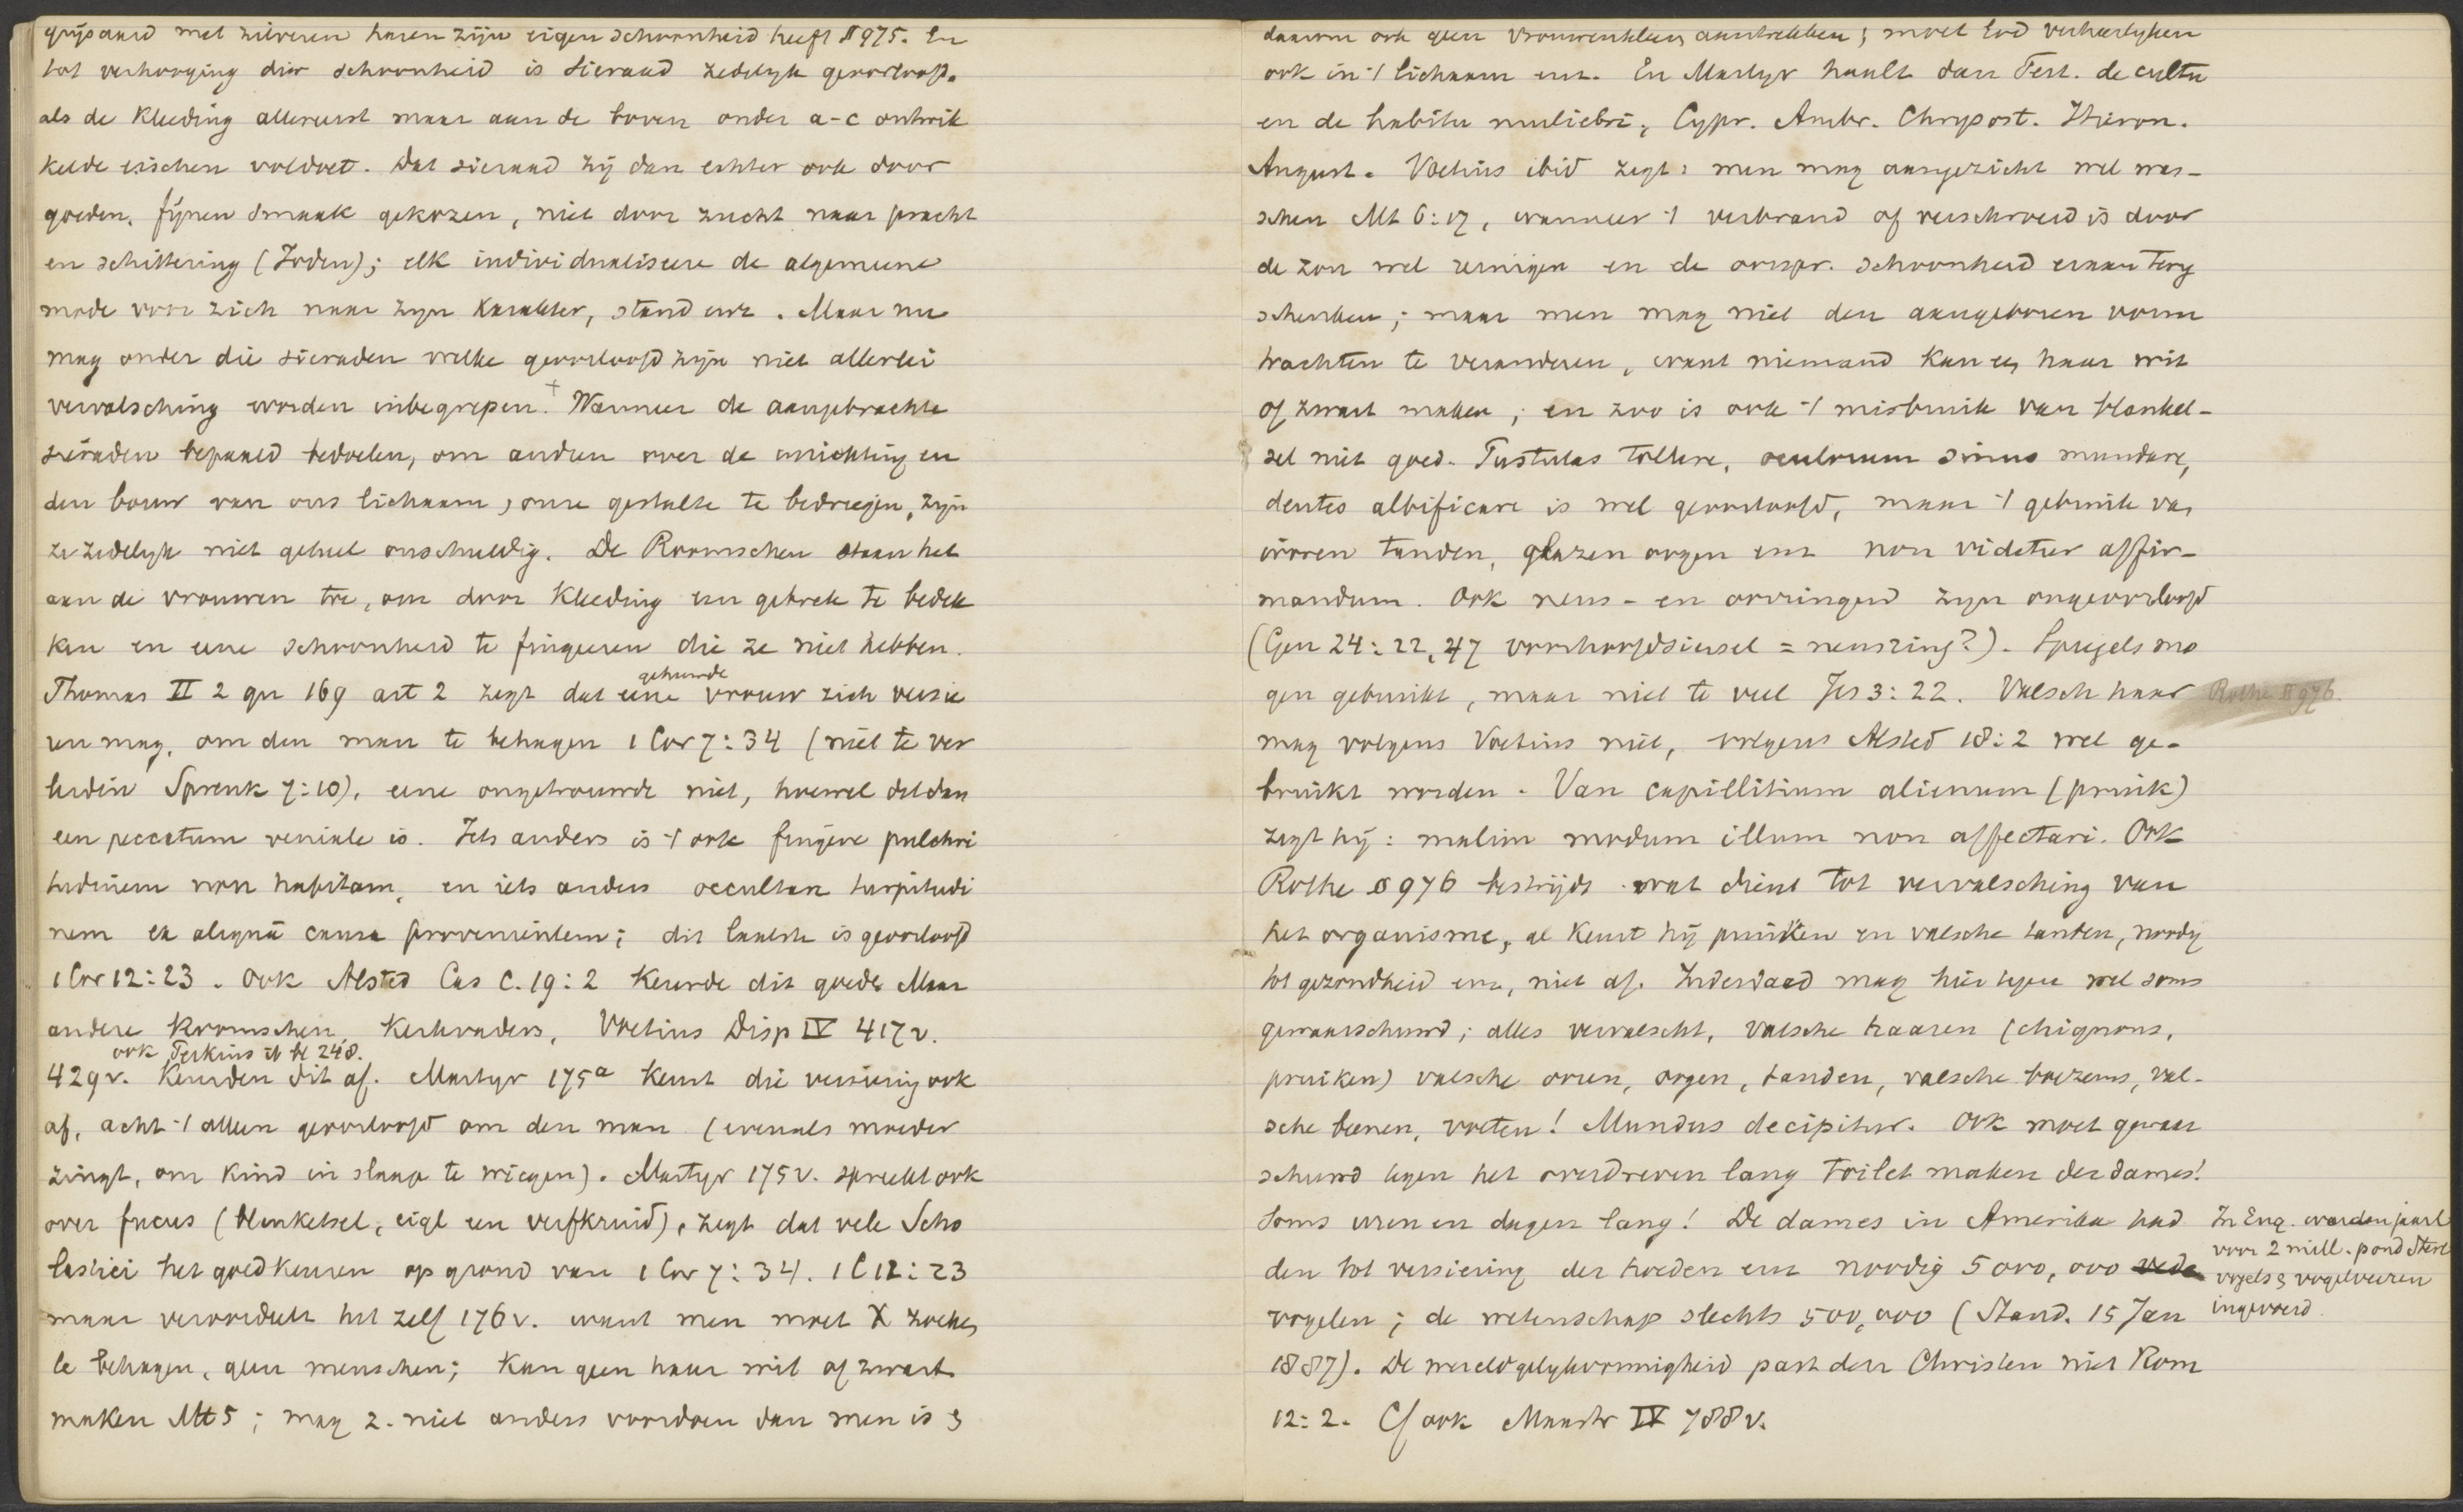 grijsaard met zilveren haren zijn eigen schoonheid heeft II 975. En
tot verhooging dier schoonheid is sieraad zedelijk geoorloofd.
als de kleeding allereerst maar aan de boven onder a-c ontwik
kelde eischen voldoet. Dat sieraad zij dan echter ook door
goeden, fijnen smaak gekozen, niet door zucht naar pracht
en schittering (Joden); elk individualiseere de algemeene
mode voor zich naar zijn karakter, stand enz. Maar nu
mag onder die sieraden welke geoorloofd zijn niet allerlei
vervalsching worden inbegrepen.+ Wanneer de aangebrachte
sieraden bepaald bedoelen, om anderen over de inrichting en
den bouw van ons lichaam, onze gestalte te bedriegen, zijn
ze zedelijk niet geheel onschuldig. De Roomschen staan het
aan de vrouwen toe, om door kleeding een gebrek te bedek
ken en eene schoonheid te fingeeren die ze niet hebben.
gehuwde
Thomas II 2 qu 169 art 2 zegt dat eene vrouw zich versie
ren mag, om den man te behagen 1 Cor 7:34 (niet te ver
leiden Spreuk 7:10), eene ongetrouwde niet, hoewel dat dan
een peccatum veniale is. Iets anders is -/ ook fingere pulchri
tudinem non habitam, en iets anders occultare turpitudi
nem ex aliquā causa provenientem; dit laatste is geoorloofd
1 Cor 12:23. Ook Alsted Cas C. 19:2 keurde dit goed. Maar
andere Roomschen, Kerkvaders, Voetius Disp IV 417v.
ook Perkins 248.
429v. keurden dit af. Martyr 175a keurt die versiering ook
af, acht -/ alleen geoorloofd om den man (evenals moeder
zingt, om kind in slaap te wiegen). Martyr 175v. spreekt ook
over fucus (blanketsel, eigl een verfkruid), zegt dat vele Scho
lastici het goedkeuren op grond van 1 Cor 7:34. 1 C 12:23
maar veroordeelt het zelf 176v. want men moet X zoeken
te behagen, geen menschen; kan geen haar wit of zwart
maken Mt 5; mag z. niet anders voordoen dan men is &
daarom ook geen vrouwenkleeren aantrekken; moet God verheerlijken
ook in -/ lichaam enz. En Martyr haalt dan Tert. de cultu
en de habitu muliebri, Cypr. Ambr. Chrysost. Hieron.
August. Voetius ibid zegt: men mag aangezicht wel was-
schen Mt 6:17, wanneer -/ verbrand of verschroeid is door
de zon wel reinigen en de oorspr. schoonheid eraan terug
schenken; maar men mag niet den aangeboren vorm
trachten te veranderen, want niemand kan een haar wit
of zwart maken; en zoo is ook -/ misbruik van blanket-
sel niet goed. Pustulas tollere, oculorum sinus mundare,
dentes albificare is wel geoorloofd, maar -/ gebruik van
ivoren tanden, glazen oogen enz non videtur affir-
mandum. Ook neus- en oorringen zijn ongeoorloofd
(Gen 24:22, 47 voorhoofdsiersel = neusring?). Spiegels mo
gen gebruikt, maar niet te veel Jes 3:22. Valsch haar
Rothe II 976.
mag volgens Voetius niet, volgens Alsted 18:2 wel ge-
bruikt worden. Van capillitium alienum (pruik)
zegt hij: malim modum illum non affectari. Ook
Rothe § 976 bestrijdt wat dient tot vervalsching van
het organisme, al keurt hij pruiken en valsche tanden, noodig
tot gezondheid enz, niet af. Inderdaad mag hier tegen wel soms
gewaarschuwd; alles vervalscht, valsche haaren (chignons,
pruiken) valsche ooren, oogen, tanden, valsche boezems, val-
sche beenen, voeten! Mundus decipitur. Ook moet gewaar
schuwd tegen het overdreven lang toilet maken der dames!
Soms uren en dagen lang! De dames in Amerika had
den tot versiering der hoeden enz noodig 5000,000
vogelen; de wetenschap slechts 500,000 (Stand. 15 Jan
1887). De wereldgelijkvormigheid past den Christen niet Rom
12:2. Cf ook Maastr IV 788v.
In Eng. worden jaarl
voor 2 mill. pond Sterl
vogels & vogelveeren
ingevoerd.